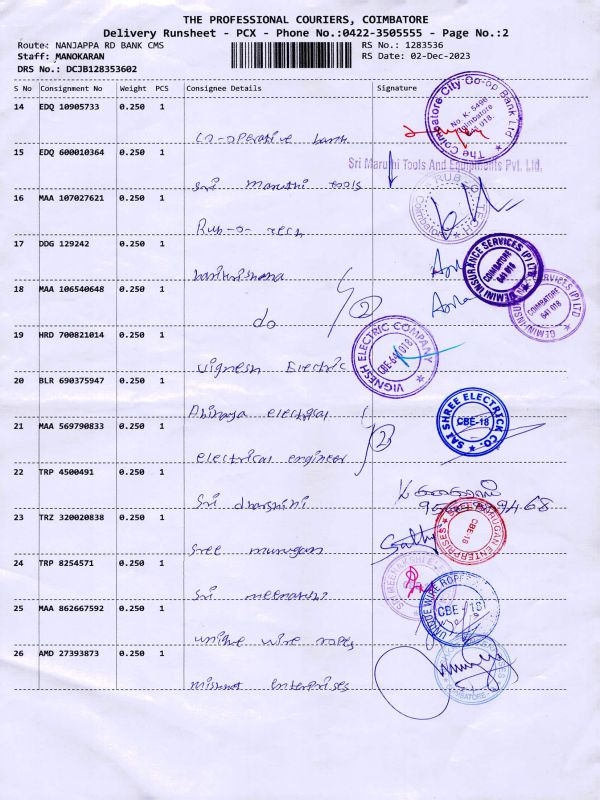 THE PROFESSIONAL COURIERS, COIMBATORE
Delivery Runsheet - PCX - Phone No.:0422-3505555 - Page No.:2
Route: NANJAPPA RD BANK CMS RS No.: 1283536
Staff: MANOKARAN RS Date: 02-Dec-2023
DRS No.: DCJB128353602
S No Consignment No Weight PCS Consignee Details Signature
14 EDQ 10905733 0.250 1
Co-operative bank
The Coimbatore City Co-op Bank Ltd
No. K-5496
Coimbatore
641 018.
15 EDQ 600010364 0.250 1
Sri Maruthi Tools And Equipments Pvt. Ltd.
Sri maruthi tools
16 MAA 107027621 0.250 1
RUB O TECH
Coimbatore
Rub-o-tech
17 DDG 129242 0.250 1
GEMINI INSURANCE SERVICES (P) LTD
COIMBATORE
641 018
18 MAA 106540648 0.250 1
2
do
GEMINI INSURANCE SERVICES (P) LTD
COIMBATORE
641 018
19 HRD 700821014 0.250 1
VIGNESH ELECTRIC COMPANY
CBE-641 018
vignesh Electric
20 BLR 690375947 0.250 1
Abinaya electrical
SAI SHREE ELECTRICK CO.
CBE-18
21 MAA 569790833 0.250 1
2
electrical engineer
22 TRP 4500491 0.250 1
Sri dharshini
23 TRZ 320020838 0.250 1
MURUGAN ENTERPRISES
CBE-18
Sree murugan
24 TRP 8254571 0.250 1
Sri meenatshi
25 MAA 862667592 0.250 1
UNIQUE WIRE ROPES
CBE-18
unique wire ropes
26 AMD 27393873 0.250 1
COIMBATORE
enterprises